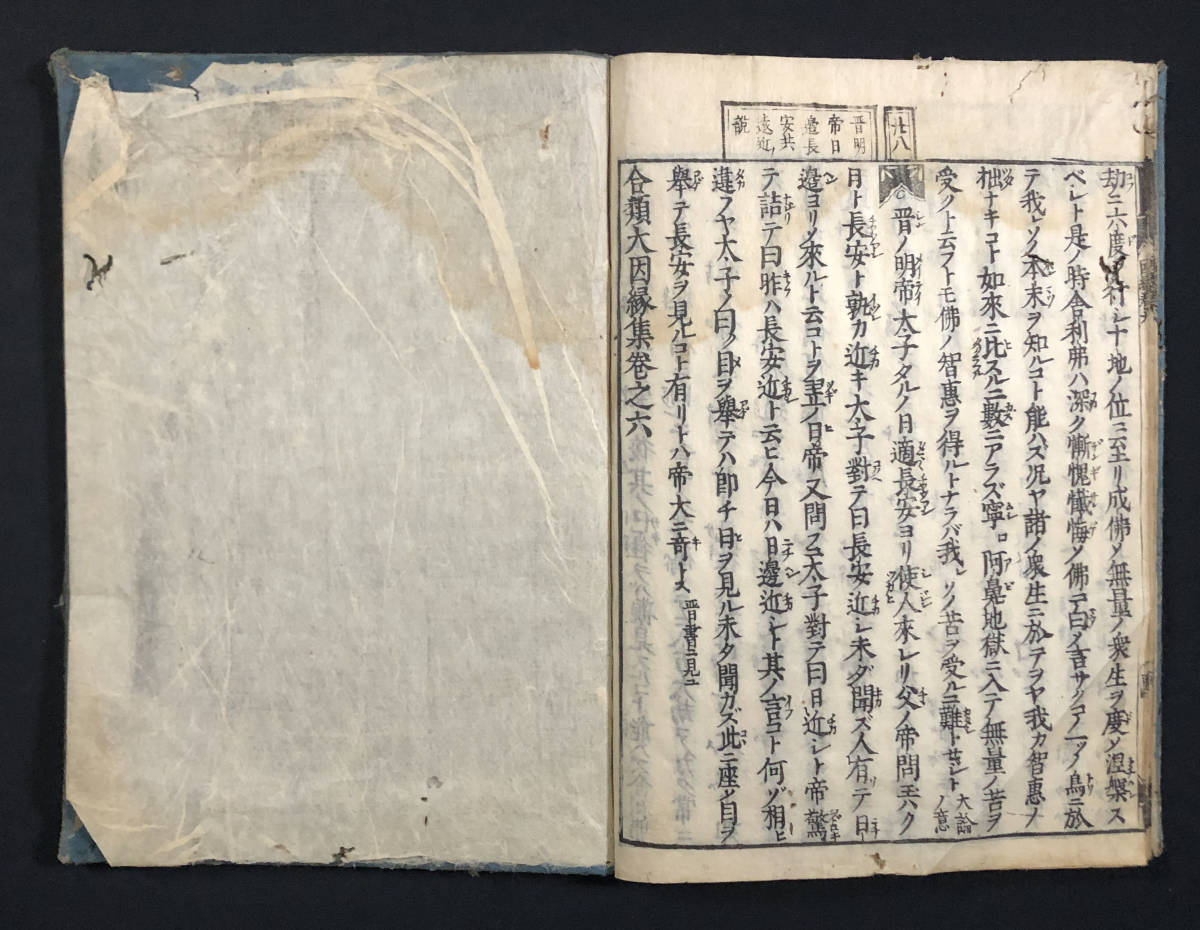 廿八
晋明
帝日
邊長
安共
遠近ノ
説
劫ニ六度ヲ行シ十地ノ位ニ至リ成佛ノ無量ノ衆生ヲ度ノ涅槃ス
ベレト是ノ時舎利弗ハ深ク慚愧懺悔ノ佛ニ曰ノ言サクコノ一ツノ鳥ニ於
テ我レソノ本末ヲ知ルコト能ハズ况ヤ諸ノ衆生ニ於テヲヤ我カ智惠ノ
拙ナキコト如來ニ比スルニ數ニアラズ寧ロ阿鼻地獄ニ入テノ無量ノ苦ヲ
受ノト云フトモ佛ノ智惠ヲ得ルトナラバ我レソノ苦ヲ受ルニ難トセジト 大論ノ意
晋ノ明帝太子タルノ日適長安ヨリ使人來レリ父ノ帝問玉ハク
日ト長安ト孰カ近キ太子對テ曰長安近シ未ダ聞ズ人有テ日
邊ヨリノ來ルト云コトヲ翌ノ日帝又問フ太子對テ曰日近シト帝驚
テ詰テ曰昨ハ長安近ト云ヒ今日ハ日邊近シト其ノ言コト何ゾ相ヒ
違フヤ太子ノ曰ク目ヲ舉テハ即チ日ヲ見ル未タ聞カズ此ニ座ノ目ヲ
舉テ長安ヲ見ルコト有リトハ帝大ニ奇トス 晋書ニ見ユ
合類大因縁集卷之六